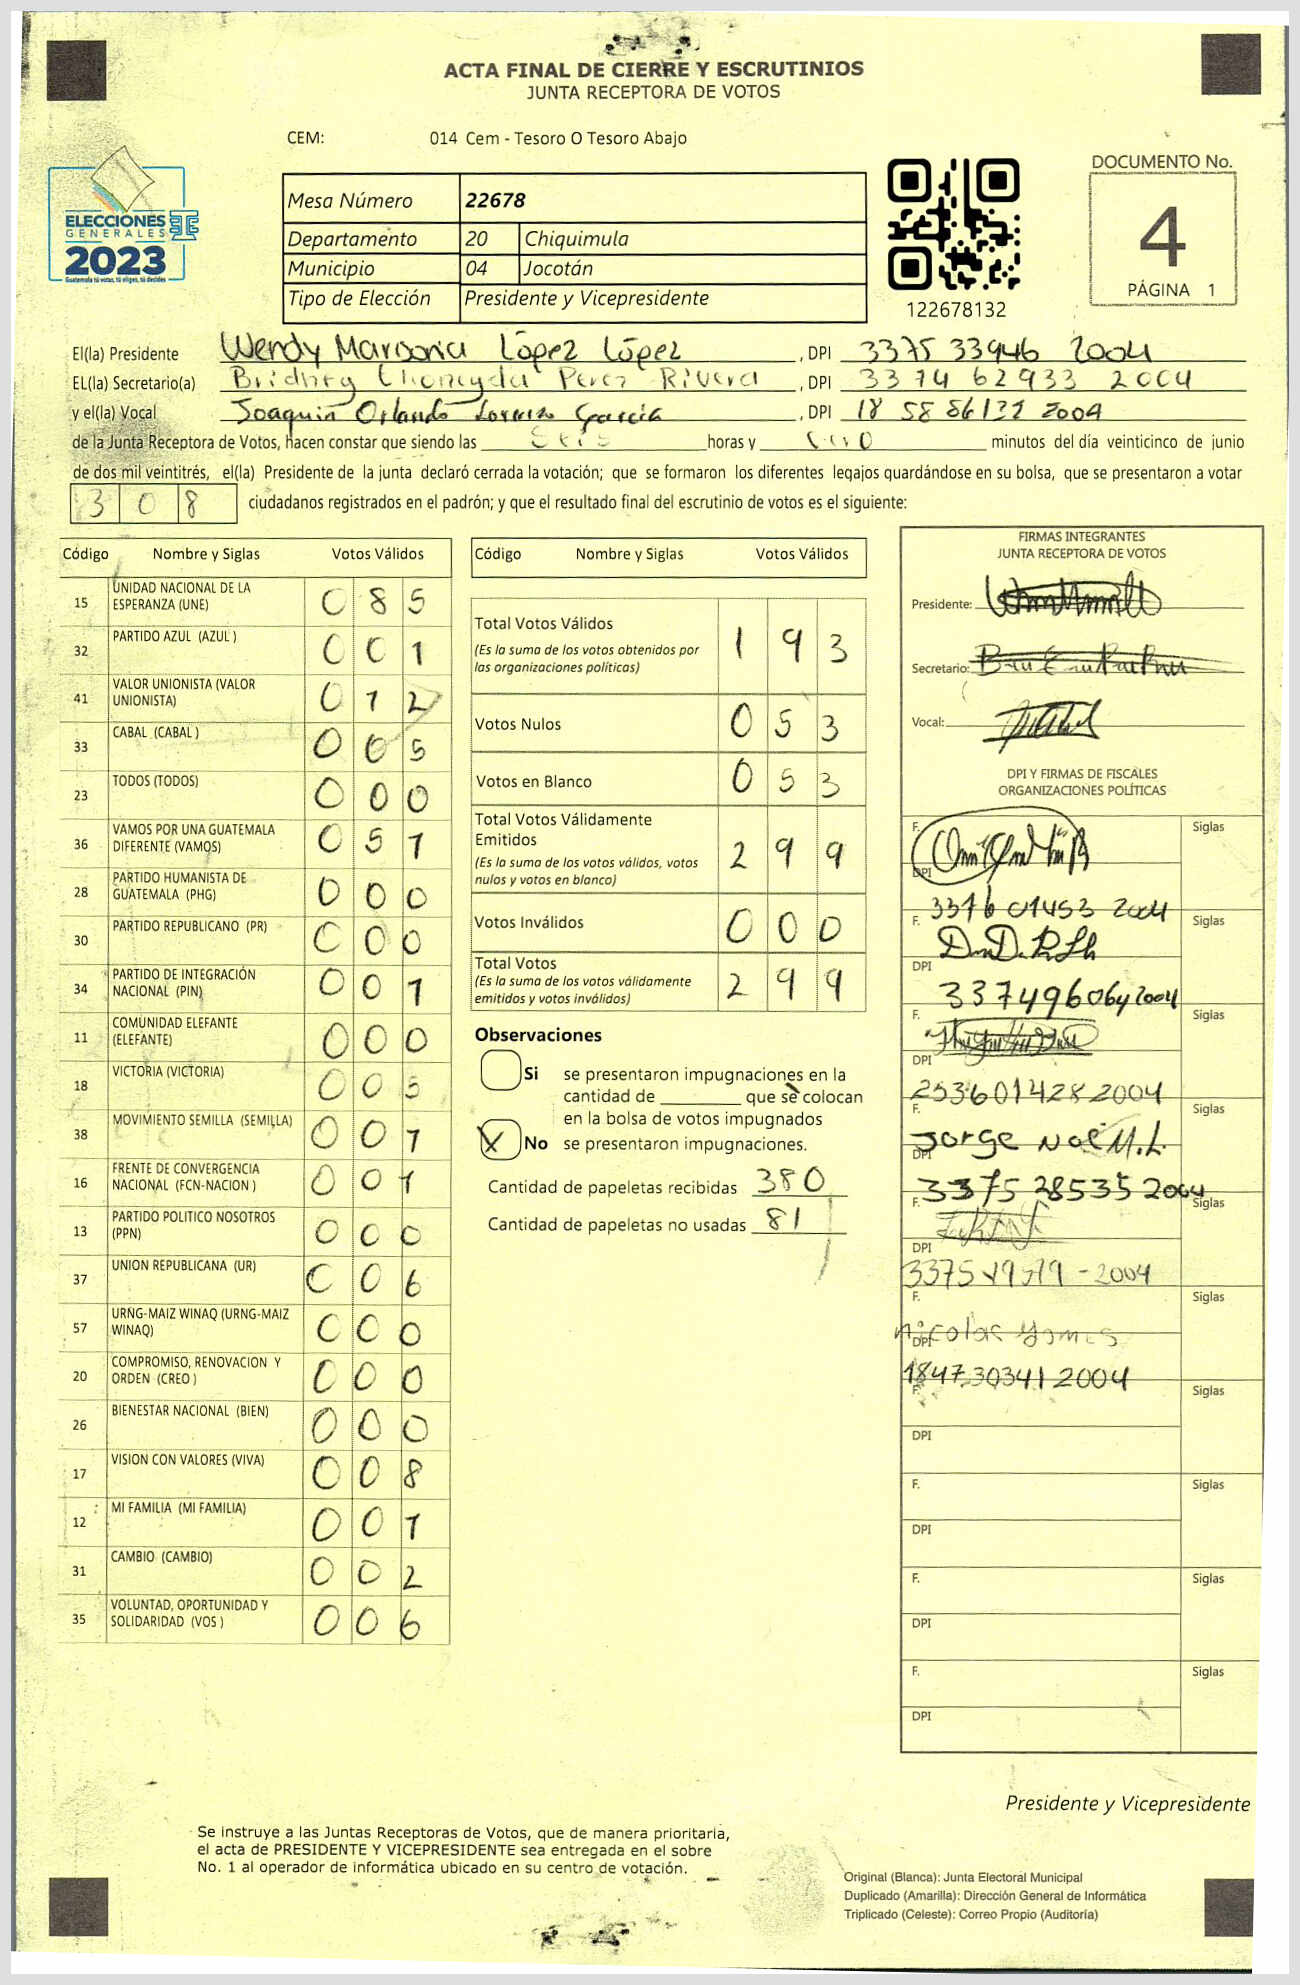 ACTA FINAL DE CIERRE Y ESCRUTINIOS
JUNTA RECEPTORA DE VOTOS
CEM: 014 Cem - Tesoro O Tesoro Abajo
ELECCIONES
GENERALES
2023
Guatemala tú votas, tú eliges, tú decides
Mesa Número 22678
Departamento 20 Chiquimula
Municipio 04 Jocotán
Tipo de Elección Presidente y Vicepresidente
122678132
DOCUMENTO No.
4
PÁGINA 1
El(la) Presidente Wendy López López , DPI 3375 33946 2004
EL(la) Secretario(a) Perez Rivera , DPI 3374 62933 2004
y el(la) Vocal Joaquin Orlando García , DPI 2004
de la Junta Receptora de Votos, hacen constar que siendo las Seis horas y minutos del día veinticinco de junio
de dos mil veintitrés, el(la) Presidente de la junta declaró cerrada la votación; que se formaron los diferentes legajos quardándose en su bolsa, que se presentaron a votar
308 ciudadanos registrados en el padrón; y que el resultado final del escrutinio de votos es el siguiente:
Código Nombre y Siglas Votos Válidos
15 UNIDAD NACIONAL DE LA ESPERANZA (UNE) 0 8 5
32 PARTIDO AZUL (AZUL ) 0 0 1
41 VALOR UNIONISTA (VALOR UNIONISTA) 0 1 2
33 CABAL (CABAL ) 0 0 5
23 TODOS (TODOS) 0 0 0
36 VAMOS POR UNA GUATEMALA DIFERENTE (VAMOS) 0 5 1
28 PARTIDO HUMANISTA DE GUATEMALA (PHG) 0 0 0
30 PARTIDO REPUBLICANO (PR) 0 0 0
34 PARTIDO DE INTEGRACIÓN NACIONAL (PIN) 0 0 1
11 COMUNIDAD ELEFANTE (ELEFANTE) 0 0 0
18 VICTORIA (VICTORIA) 0 0 5
38 MOVIMIENTO SEMILLA (SEMILLA) 0 0 1
16 FRENTE DE CONVERGENCIA NACIONAL (FCN-NACION ) 0 0 1
13 PARTIDO POLITICO NOSOTROS (PPN) 0 0 0
37 UNION REPUBLICANA (UR) 0 0 6
57 URNG-MAIZ WINAQ (URNG-MAIZ WINAQ) 0 0 0
20 COMPROMISO, RENOVACION Y ORDEN (CREO ) 0 0 0
26 BIENESTAR NACIONAL (BIEN) 0 0 0
17 VISION CON VALORES (VIVA) 0 0 8
12 MI FAMILIA (MI FAMILIA) 0 0 1
31 CAMBIO (CAMBIO) 0 0 2
35 VOLUNTAD, OPORTUNIDAD Y SOLIDARIDAD (VOS ) 0 0 6
Código Nombre y Siglas Votos Válidos
Total Votos Válidos 1 9 3
(Es la suma de los votos obtenidos por
las organizaciones políticas)
Votos Nulos 0 5 3
Votos en Blanco 0 5 3
Total Votos Válidamente
Emitidos 2 9 9
(Es la suma de los votos válidos, votos
nulos y votos en blanco)
Votos Inválidos 0 0 0
Total Votos 2 9 9
(Es la suma de los votos válidamente
emitidos y votos inválidos)
Observaciones
Si se presentaron impugnaciones en la
cantidad de ________ que se colocan
en la bolsa de votos impugnados
X No se presentaron impugnaciones.
Cantidad de papeletas recibidas 380
Cantidad de papeletas no usadas 81
FIRMAS INTEGRANTES
JUNTA RECEPTORA DE VOTOS
Presidente:
Secretario:
Vocal:
DPI Y FIRMAS DE FISCALES
ORGANIZACIONES POLÍTICAS
F. Siglas
DPI 3376 01453 2004
F. Siglas
DPI 337496064 2004
F. Siglas
DPI 253601428 2004
F. Jorge Noe M.L. Siglas
DPI 3375 28535 2004
F. Siglas
DPI
F. nicolas gomes Siglas
DPI 1847 30341 2004
F. Siglas
DPI
F. Siglas
DPI
F. Siglas
DPI
F. Siglas
DPI
Presidente y Vicepresidente
Se instruye a las Juntas Receptoras de Votos, que de manera prioritaria,
el acta de PRESIDENTE Y VICEPRESIDENTE sea entregada en el sobre
No. 1 al operador de informática ubicado en su centro de votación.
Original (Blanca): Junta Electoral Municipal
Duplicado (Amarilla): Dirección General de Informática
Triplicado (Celeste): Correo Propio (Auditoría)